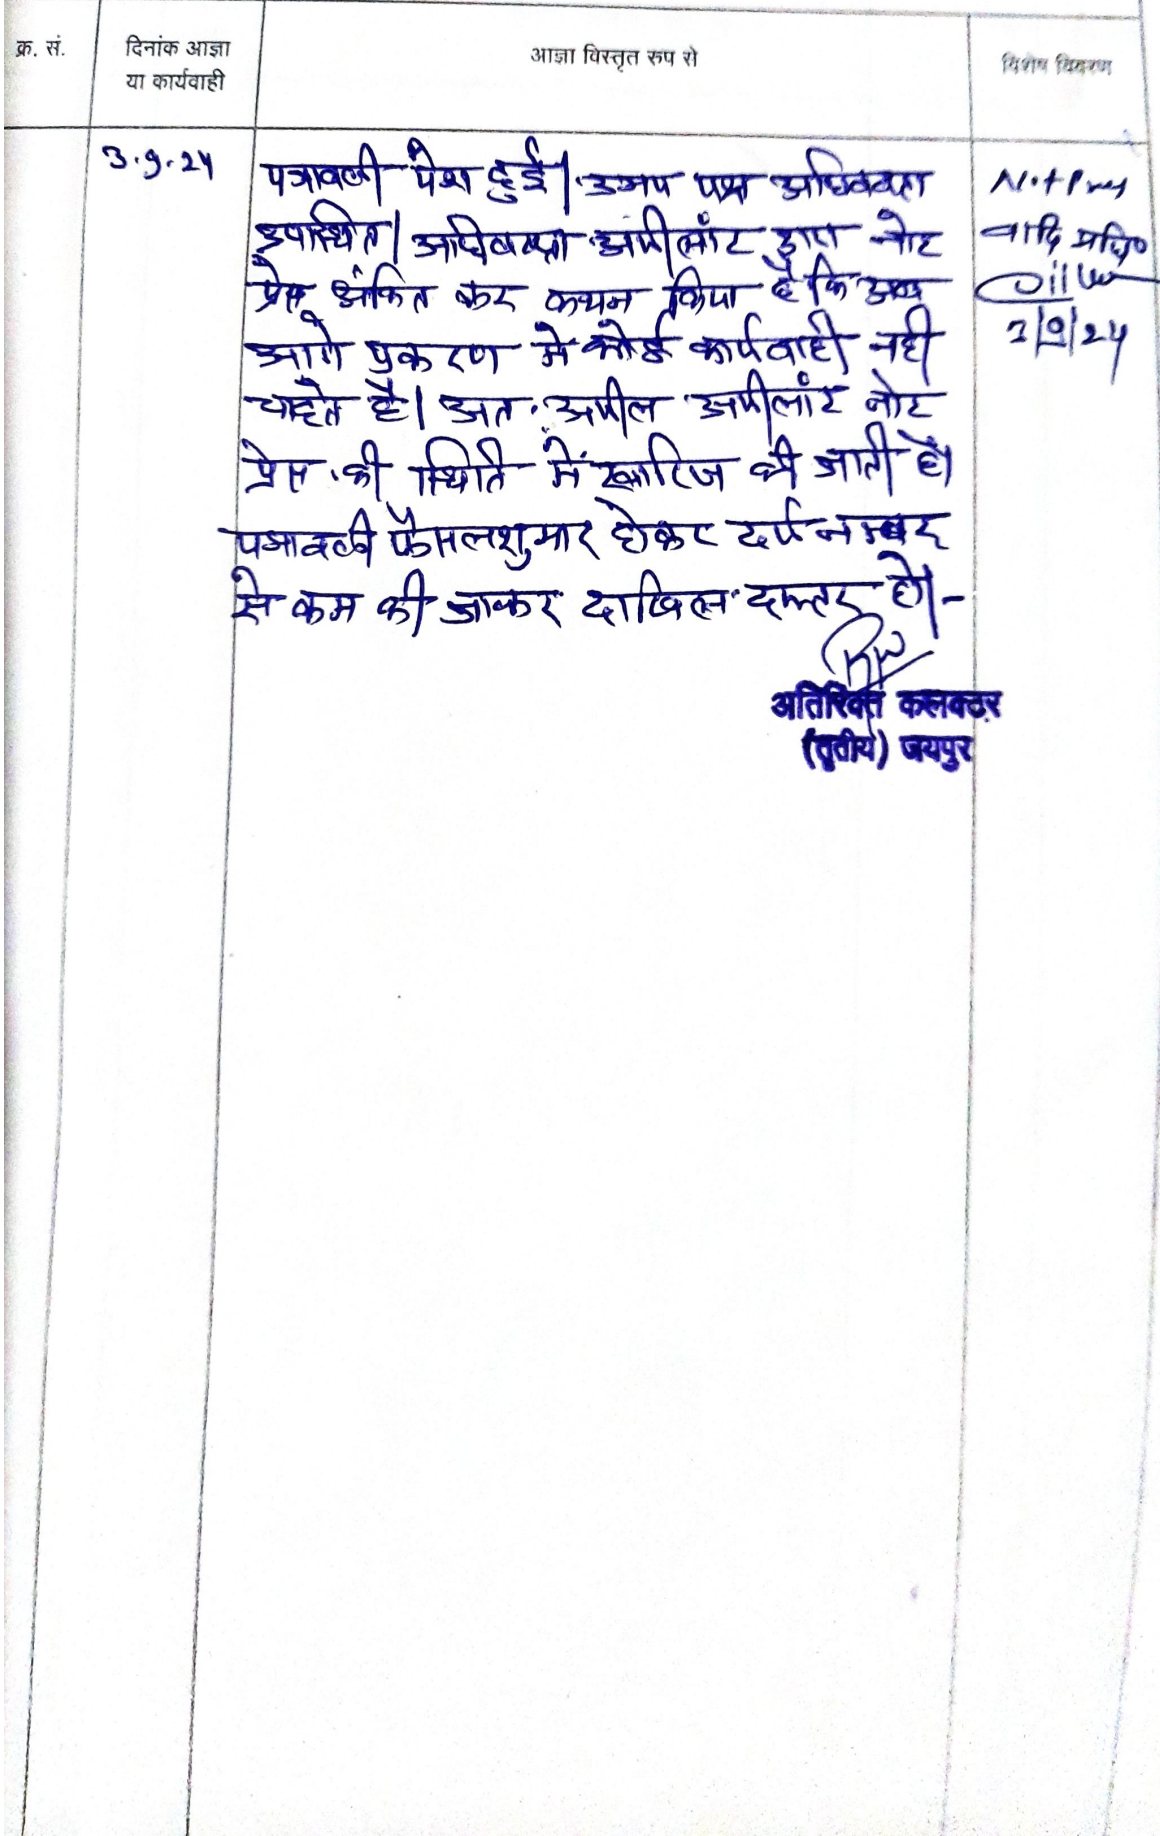 क्र. सं.
दिनांक आज्ञा
या कार्यवाही
आज्ञा विस्तृत रुप से
विशेष विवरण
3.9.24
पत्रावली पेश हुई। उभय पक्ष अधिवक्ता
उपस्थित। अधिवक्ता अपीलांट द्वारा नोट
प्रेस अंकित कर कथन किया है कि अब
आगे प्रकरण में कोई कार्यवाही नही
चाहते है। अत: अपील अपीलांट नोट
प्रेस की स्थिति में खारिज की जाती है।
पत्रावली फैसलशुमार होकर दर्ज नम्बर
से कम की जाकर दाखिल दफ्तर हो।-
Not Press
3/9/24
अतिरिक्त कलक्टर
(तृतीय) जयपुर